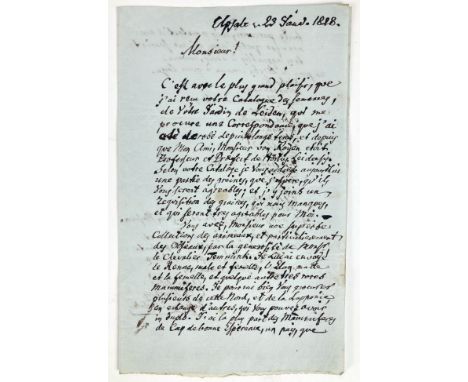 Upsale 23 Janv. 1828.
Monsieur!
C'est avec le plus grand plaisir, que
j'ai reçu votre Catalogue des semences,
de Votre Jardin de Leiden, qui me
procure une Correspondance, que j'ai
depuis longs tems, et depuis
que Mon Ami, Monsieur van Royen étoit
Professeur et
Selon votre Cataloge je Vous
une partie des graines, que j'espere, qu'ils
Vous seront agreables; et j'y joints un
Requisition des graines, qui nous manquent,
et qui seront très agreables pour Moi.
Vous avez, Monsieur une superbe
Collections des animeaux, et particulierement
des Oiseaux, par la generosité de Monsr.
le Chevalier Temminck. Je lui ai envoyé
le Renne, male et femelle, le Elan male
et la femelle, et quelque autre tres rares
mammiferes. Je pourrai bien Vous procurer
plusieurs de cette Nord, et de la Lapponie
en echange d'autres, qui Vous pouvez avoir
en duple. J'ai la plus part des Mammiferes
de Cap de bonne Esperance, un pays, que